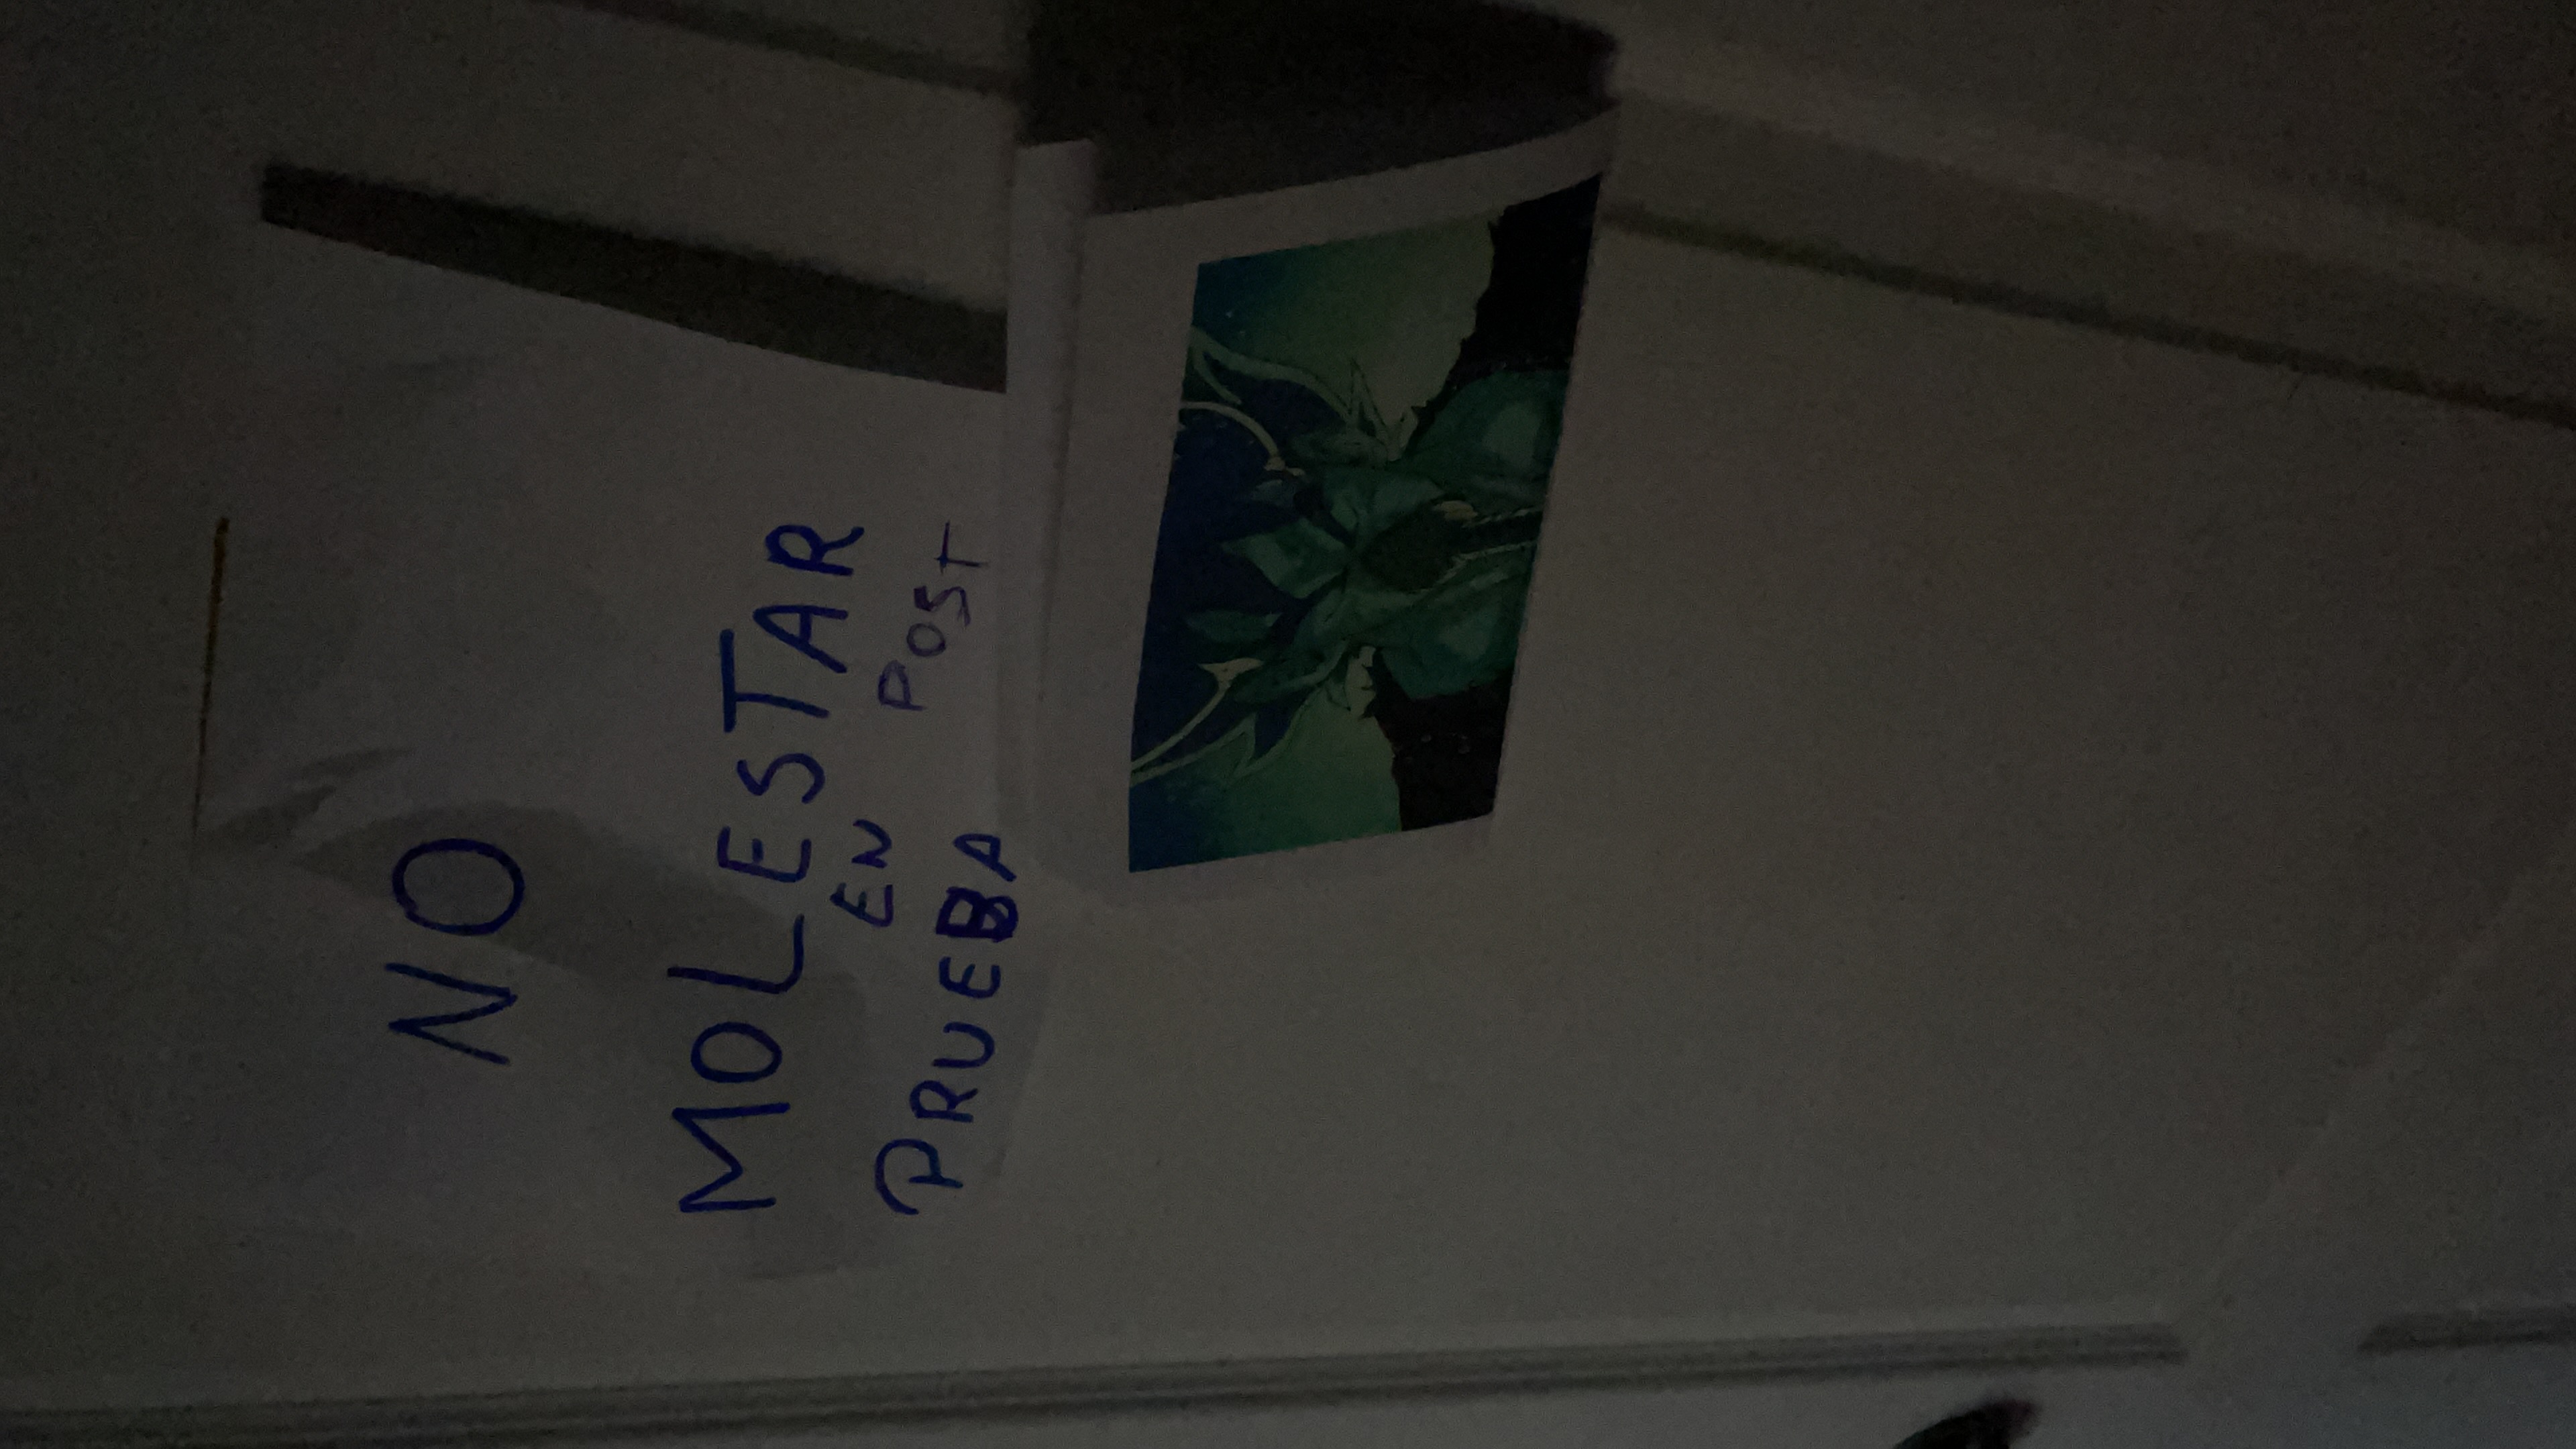 NO
MOLESTAR
EN POST
PRUEBA